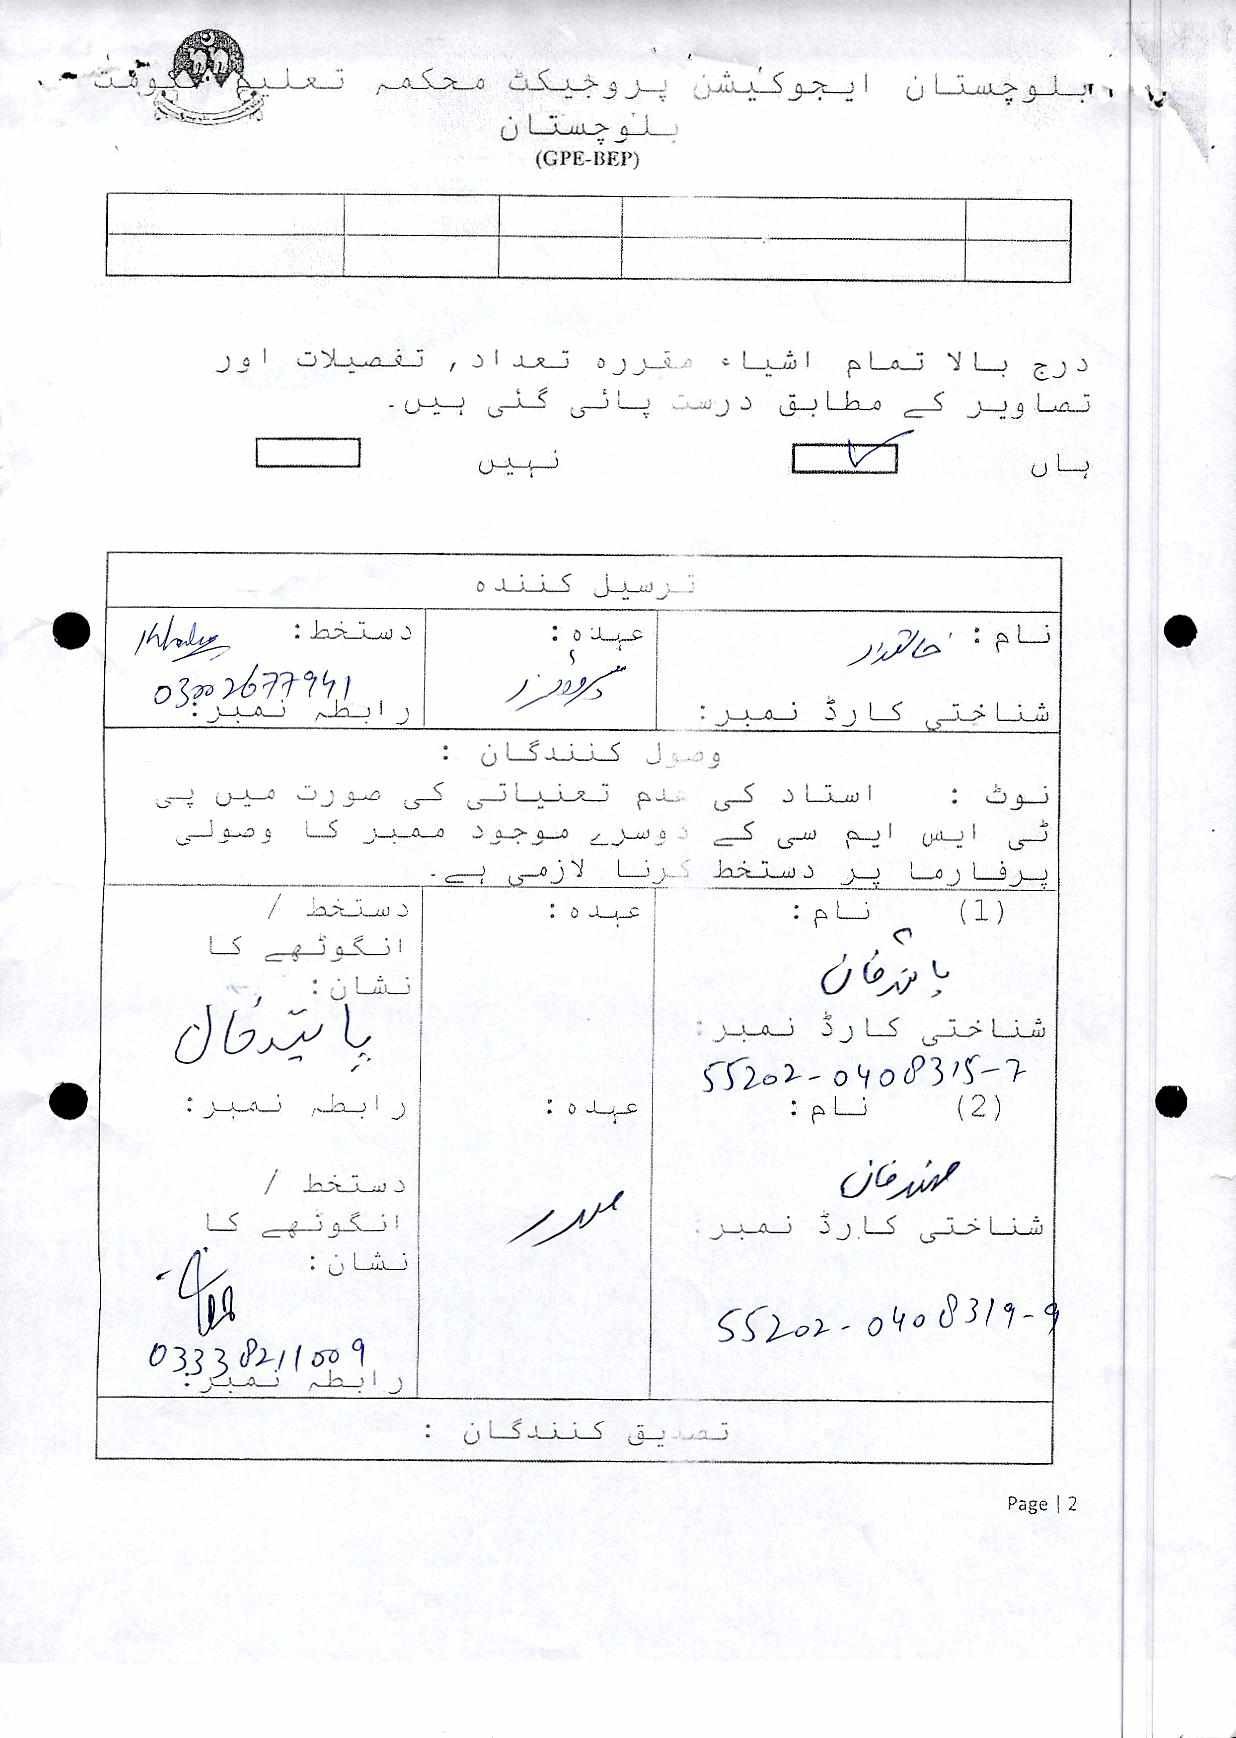 بلوچستان ایجوکیشن پروجیکٹ محکمہ تعلیم حکومت
بلوچستان
(GPE-BEP)
درج بالا تمام اشیاء مقررہ تعداد, تفصیلات اور
تصاویر کے مطابق درست پائی گئی ہیں۔
ہاں نہیں
ترسیل کنندہ
نام: عہدہ: دستخط:
03002677941
شناختی کارڈ نمبر: رابطہ نمبر:
وصول کنندگان :
نوٹ : استاد کی عدم تعنیاتی کی صورت میں پی
ٹی ایس ایم سی کے دوسرے موجود ممبر کا وصولی
پرفارما پر دستخط کرنا لازمی ہے۔
(1) نام: عہدہ: دستخط /
انگوٹھے کا
نشان:
پائندخان پائندخان
شناختی کارڈ نمبر:
55202-0408315-7
(2) نام: عہدہ: رابطہ نمبر:
دستخط /
صدر
شناختی کارڈ نمبر: انگوٹھے کا
نشان:
55202-0408319-9
03338211009
رابطہ نمبر:
تصدیق کنندگان :
Page | 2